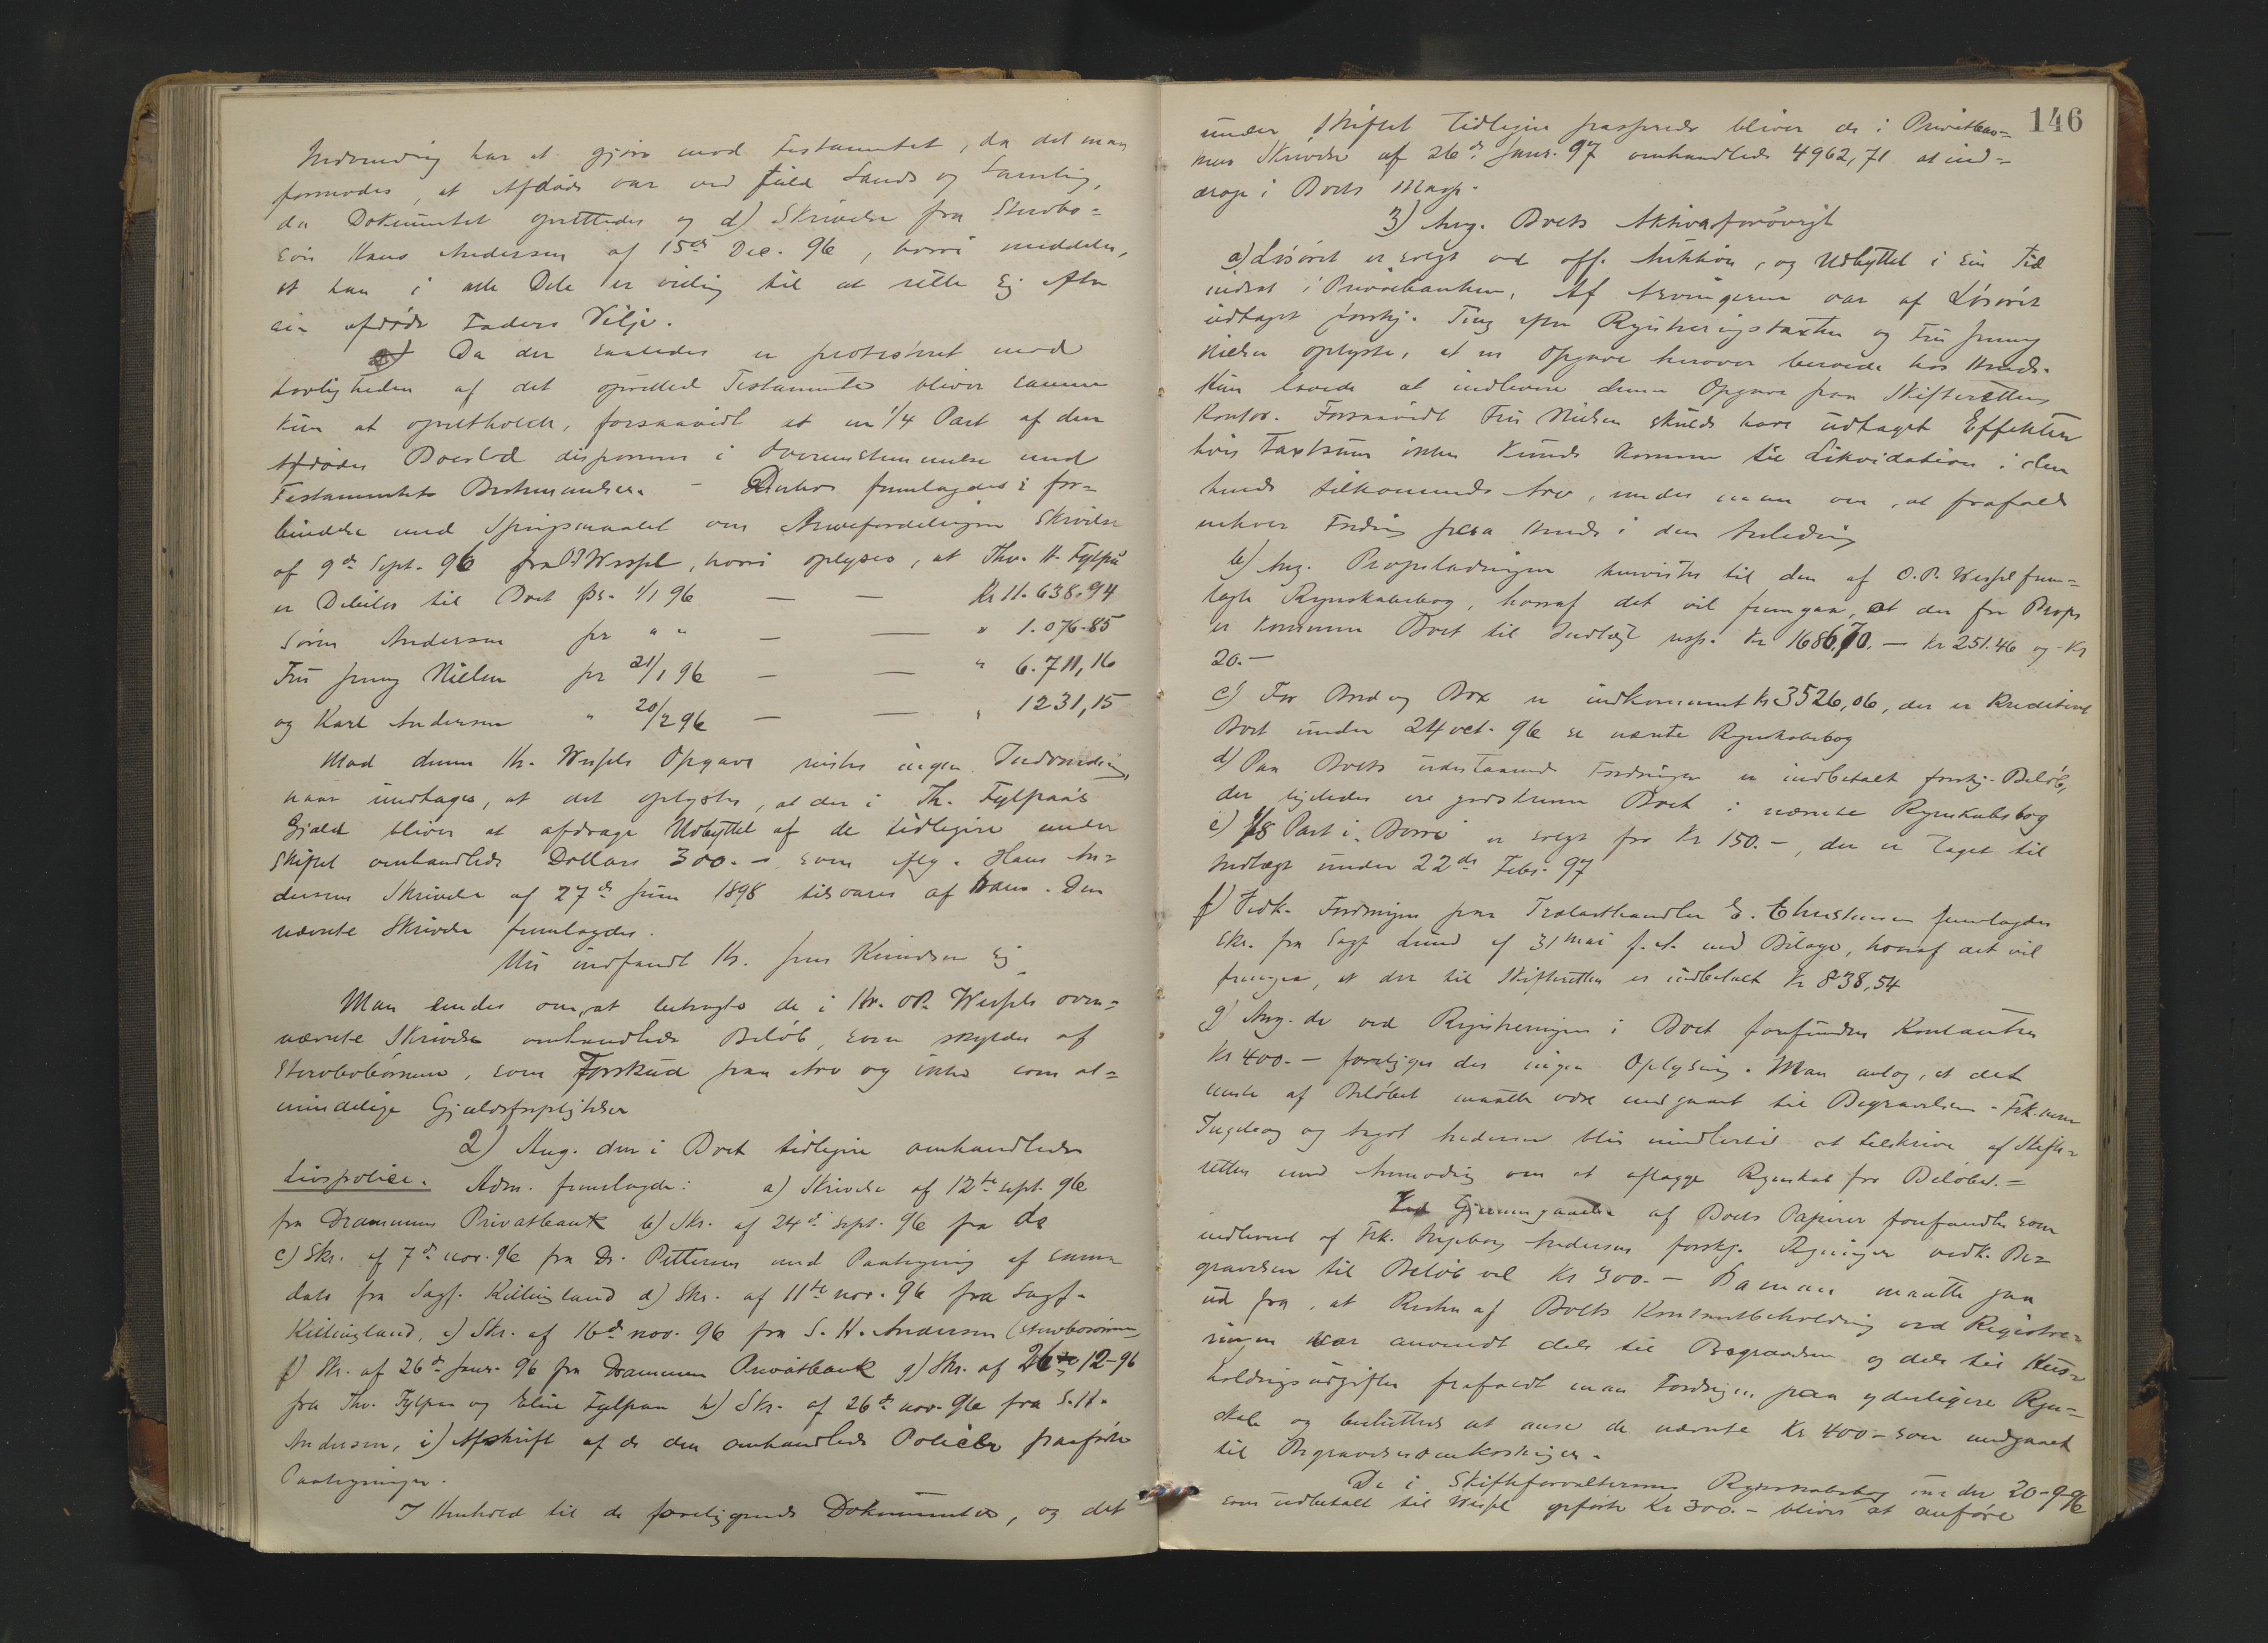 Indvending har at gjøre mod Testamentet, da det maa
formodes, at Afdøde var ved fuld Sands og Samling,
da Dokumentet oprettedes og d) Skrivelse fra Stervbo=
søn Hans Andersen af 15de Dec. 96, hvori meddeles,
at han i alle Dele er villig til at rette sig efter
sin afdøde Faders Vilje.
Da der saaledes er protesteret mod
Lovligheden af det oprettede Testamente bliver samme
kun at opretholde, forsaavidt at en 1/4 Part af den
Afdødes Boeslod disponeres i Overensstemmelse med
Testamentets Bestemmelser. - Derhos fremlagdes i for=
bindelse med Spørgsmaalet om Arvefordelingen Skrivelse
af 9de Sept. 96 fra Wessel, hvori oplyses, at Thv. H. Fylpaa
er Debitor til Boet pr. 1/1 96 — — Kr 11.638.94
Søren Andersen pr " " — — " 1.076.85
Fru Jenny Nielsen pr 21/1 96 — — " 6.711,16
og Karl Andersen " 20/2 96 — — " 1231,15
Mod denne Hr. Wessels Opgave reistes ingen Indvending,
naar undtages, at det oplystes, at der i Th. Fylpaas
Gjæld bliver at afdrage Udbyttet af de tidligere under
Skiftet omhandlede Dollars 300.- som iflg. Hans An=
dersens Skrivelse af 27de Juni 1898 tilsvares af ham. Den
nævnte Skrivelse fremlagdes.
Nu indfandt Hr. Jens Knudsen sig
Man enedes om, at betragte de i Hr. O.P. Wessels oven=
nævnte Skrivelse omhandlede Beløb, som skyldes af
Stervbobørnene, som Forskud paa Arv og ikke som al=
mindelige Gjældsforpligtelser
2) Ang. den i Boet tidligere omhandlede
Livspolice. Adm. fremlagde: a) Skrivelse af 12te Sept. 96
fra Drammens Privatbank b) Skr. af 24de Sept. 96 fra do
c) Skr. af 7de nov. 96 fra Dr. Pettersen med Paategning af samme
Dato fra Sagf. Killingland d) Skr. af 11te nov. 96 fra Sagf.
Killingland, e) Skr. af 16de nov. 96 fra S. H. Andersen (Stervbosønnen)
f) Skr. af 26de Janr. 96 fra Drammens Privatbank g) Skr. af 26de 12-96
fra Thv. Fylpaa og Elise Fylpaa h) Skr. af 26de nov. 96 fra S. H.
Andersen, i) Afskrift af de den omhandlede Police paaførte
Paategninger.
I Henhold til de foreliggende Dokumenter, og det
146
under Skiftet tidligere passerede bliver de i Privatban=
kens Skrivelse af 26de Janr. 97 omhandlede 4962,71 at ind=
drage i Boets Masse.
3) Ang. Boets Aktiva forøvrigt
a) Løsøret er solgt ved off. Auktion, og Udbyttet i sin Tid
indsat i Privatbanken. Af Arvingerne var af Løsøret
udtaget forskj. Ting efter Registreringstaxten og Fru Jenny
Nielsen oplyste, at en Opgave herover beroede hos hende.
Hun lovede at indlevere denne Opgave paa Skifterettens
Kontor. Forsaavidt Fru Nielsen skulde have udtaget Effekter
hvis Taxtsum ikke kunde komme til Likvidation i den
hende tilkommende Arv, enedes man om, at frafalde
enhver Fordring paa hende i den Anledning
b) Ang. Propsladningen henvistes til den af O.P. Wessel frem=
lagte Regnskabsbog, hvoraf det vil fremgaa, at der for Props
er kommen Boet til Indtægt resp. Kr 1686,70. - Kr 251.46 og Kr
20.-
c) For Bred og Box er indkommet Kr 3526,06, der er krediteret
Boet under 24 oct. 96 se nævnte Regnskabsbog
d) Paa Boets udestaaende Fordringer er indbetalt forskj. Beløb,
der ligeledes ere godskrevne Boet i nævnte Regnskabsbog
e) 1/8 Part i "Borre" er solgt for Kr 150.-, der er taget til
Indtægt under 22de Febr. 97
f) Vedk. Fordringen paa Trælasthandler E. Christensen fremlagdes
Skr. fra Sagf. Lund af 31 Mai f. A. med Bilage, hvoraf det vil
fremgaa, at der til Skifteretten er indbetalt Kr 838,54
g) Ang. de ved Registreringen i Boet forefundne Kontanter
Kr 400.- foreligger der ingen Oplysning. Man antog, at det
meste af Beløbet maatte være medgaaet til Begravelsen. Frk.erne
Ingeborg og Aagot Andersen blir imidlertid at tilskrive af Skifte=
retten med Anmodning om at aflægge Regnskab for Beløbet. =
Ved Gjennemgaaelse af Boets Papirer forefandtes som
indleveret af Frk. Ingeborg Andersen forskj. Regninger vedk. Be=
gravelsen til Beløb vel Kr 300.- Da man maatte gaa
ud fra, at Resten af Boets Kontantbeholdning ved Registre=
ringen var anvendt dels til Begravelsen og dels til Hus=
holdningsudgifter frafaldt man Fordringen paa yderligere Regn=
skab og besluttede at anse de nævnte Kr 400- som medgaaet
til Begravelsesomkostninger.
De i Skifteforvalterens Regnskabsbog under 20-9-96
som udbetalt til Wessel opførte Kr 300.- blives at anføre